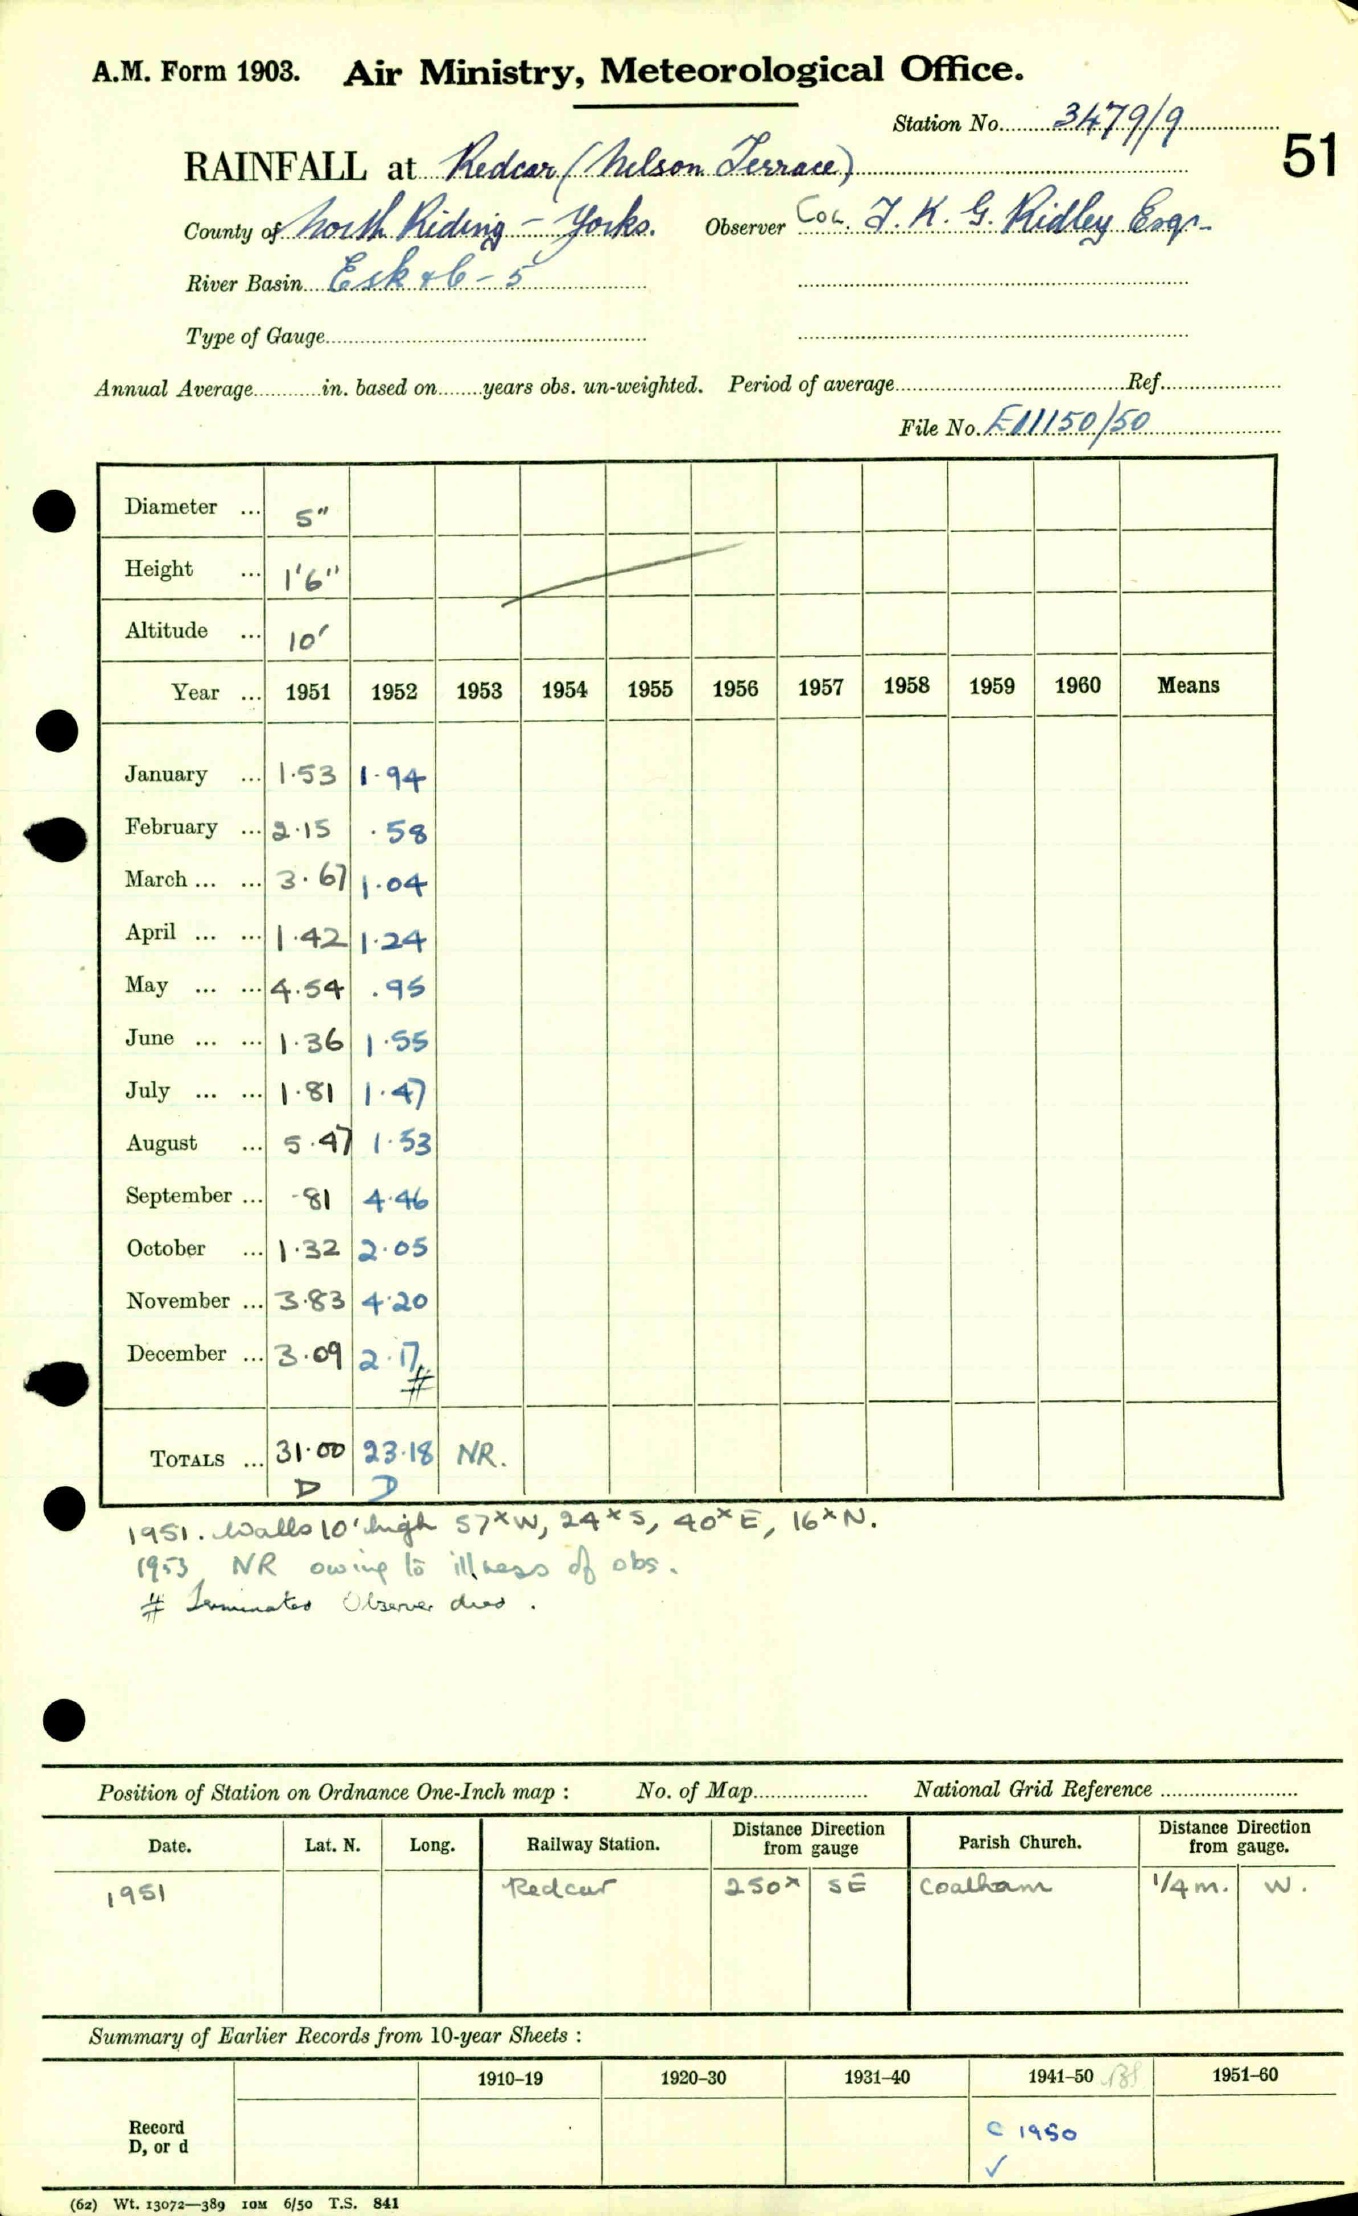 A.M. Form 1903. Air Ministry, Meteorological Office.
Station No. 3479/9
51
RAINFALL at Redcar (Nelson Terrace)
County of North Riding - Yorks. Observer Coc. J. K. G. Ridley Esqr.
River Basin Esk & C - 5
Type of Gauge
Annual Average in. based on years obs. un-weighted. Period of average Ref.
File No. E11150/50
Diameter ... 5"
Height ... 1'6"
Altitude ... 10'
Year ... 1951 1952 1953 1954 1955 1956 1957 1958 1959 1960 Means
January ... 1.53 1.94
February ... 2.15 .58
March ... ... 3.67 1.04
April ... ... 1.42 1.24
May ... ... 4.54 .95
June ... ... 1.36 1.55
July ... ... 1.81 1.47
August ... 5.47 1.53
September ... .81 4.46
October ... 1.32 2.05
November ... 3.83 4.20
December ... 3.09 2.17
#
TOTALS ... 31.00 23.18 NR.
D D
1951. Walls 10' high 57x W, 24x S, 40x E, 16x N.
1953 NR owing to illness of obs.
# Terminated Observer died.
Position of Station on Ordnance One-Inch map : No. of Map National Grid Reference
Date. Lat. N. Long. Railway Station. Distance Direction from gauge Parish Church. Distance Direction from gauge.
1951 Redcar 250x SE Coatham 1/4 m. W.
Summary of Earlier Records from 10-year Sheets :
1910–19 1920–30 1931–40 1941–50 1951–60
Record
D, or d
C 1950
✓
(62) Wt. 13072—389 10M 6/50 T.S. 841